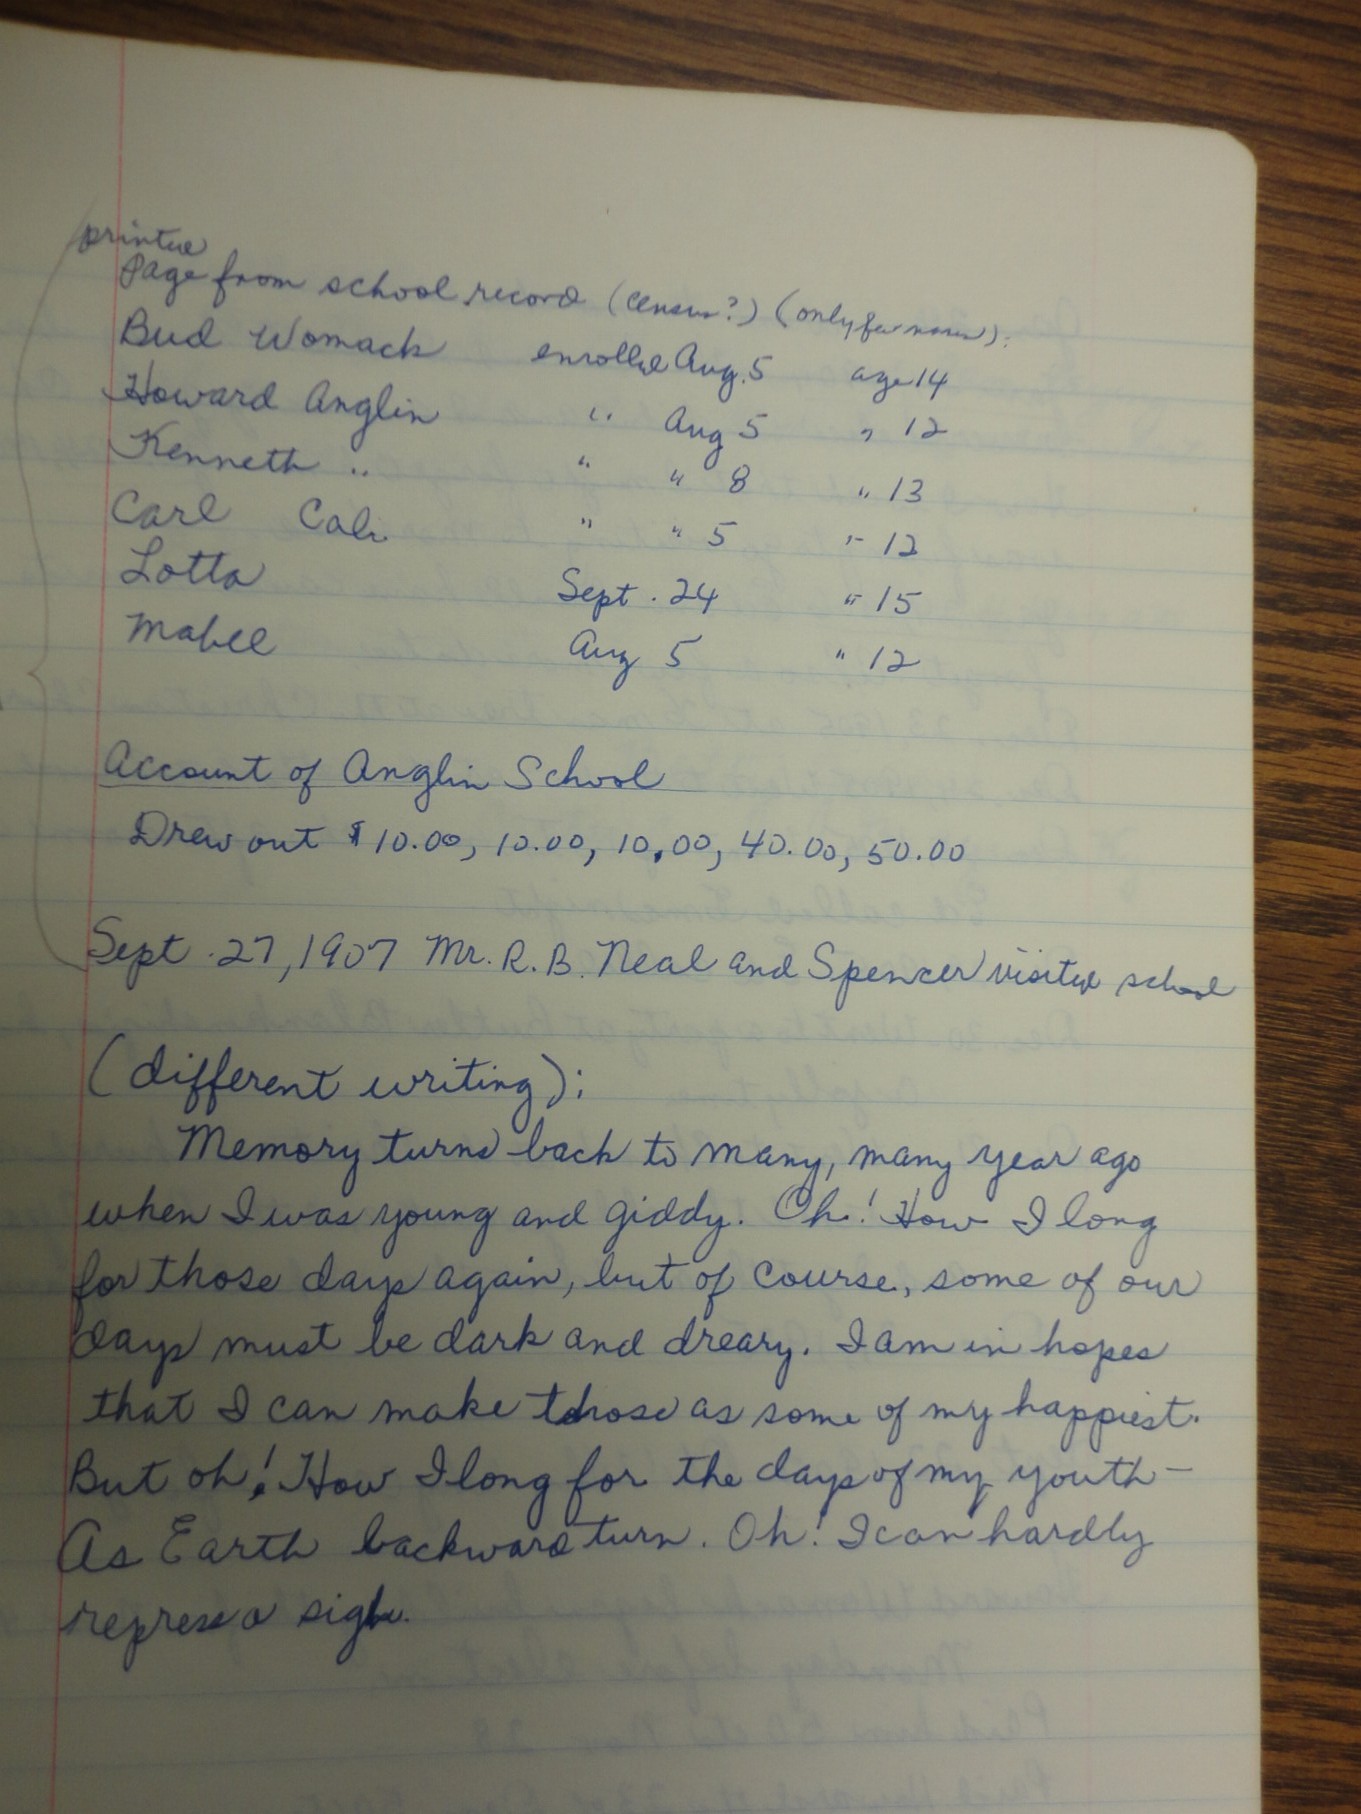 printed
Page from school record (census?) (only few names):
Bud Womack enrolled Aug. 5 age 14
Howard Anglin " Aug 5 " 12
Kenneth " " " 8 " 13
Carl " " 5 " 12
Lotta Sept. 24 " 15
Mabel Aug 5 " 12
Account of Anglin School
Drew out $10.00, 10.00, 10.00, 40.00, 50.00
Sept. 27, 1907 Mr. R. B. Neal and Spencer visited school
(different writing):
Memory turns back to many, many year ago
when I was young and giddy. Oh! How I long
for those days again, but of course, some of our
days must be dark and dreary. I am in hopes
that I can make those as some of my happiest.
But oh! How I long for the days of my youth—
As Earth backward turn. Oh! I can hardly
repress a sigh.